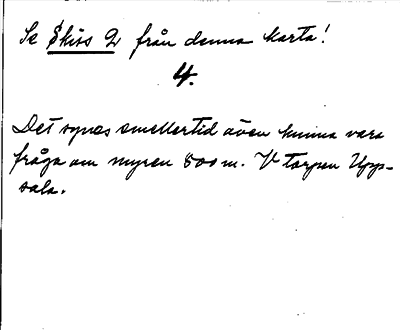 Se Skiss 2 från denna karta!
4.
Det synes emellertid även kunna vara
fråga om myren 800 m. V torpen Upp-
sala.